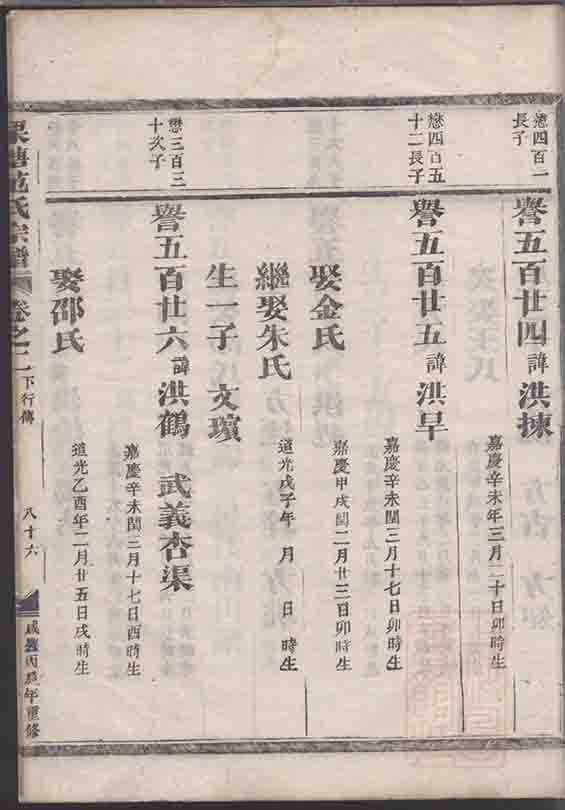 懋四百一
長子
譽五百廿四諱洪揀
嘉慶辛未年三月二十日卯時生
懋四百五
十二長子
譽五百廿五諱洪早
嘉慶辛未閏三月十七日卯時生
娶金氏
嘉慶甲戌閏二月廿三日卯時生
繼娶朱氏
道光戊子年 月 日 時生
生一子 文璸
懋三百三
十次子
譽五百廿六諱洪鶴 武義杏渠
嘉慶辛未閏三月十七日酉時生
娶邵氏
道光乙酉年二月廿五日戌時生
范氏宗譜 卷之二下行傳 八十六 咸豐丙辰年重修